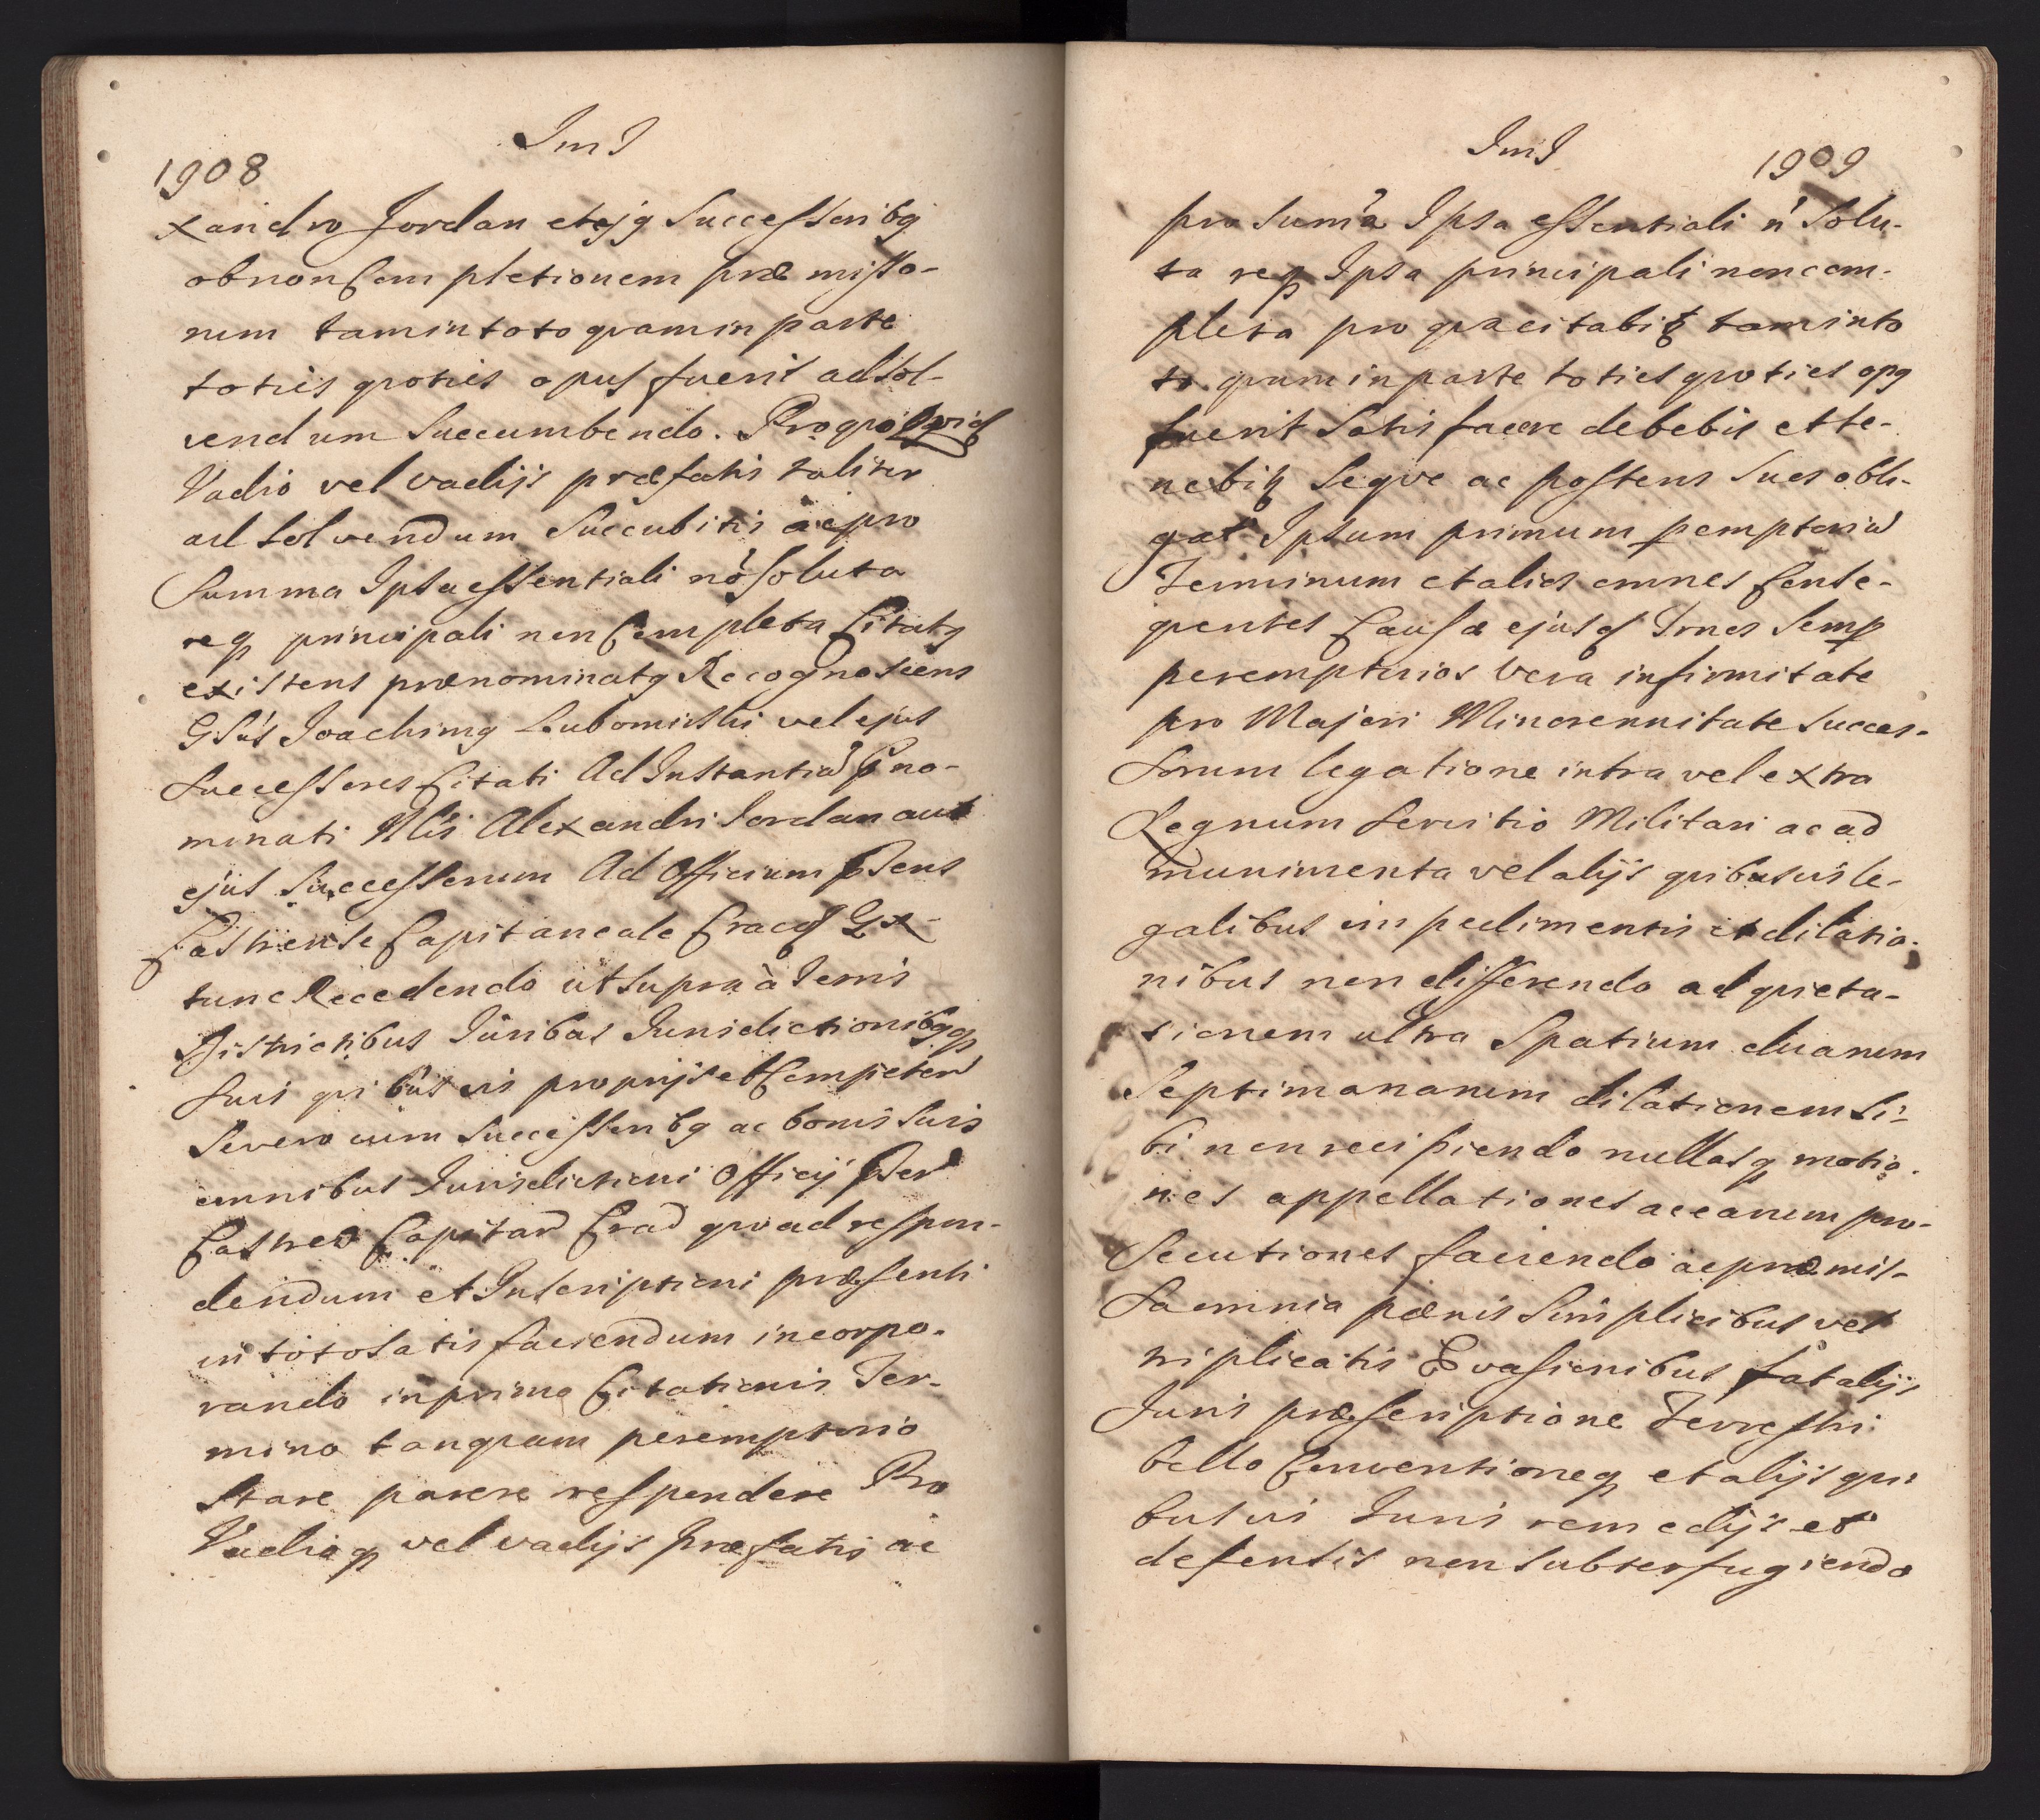 1908
Im J
xandro Jordan et ejq Successoribq
ob non Completionem præmisso-
rum tam in toto qvam in parte
toties qvoties opus fuerit ad sol-
vendum Succumbendo. Pro qvo
Vadio vel vadijs præfatis taliter
ad solvendum Succubitis ac pro
Summa Ipsa essentiali nõ soluta
req principali non Completa Citatq
existens prænominatq Recognoscens
Gsus Joachimq Lubomirski vel ejus
Successores Citati Ad Instantiã Pno-
minati Mli Alexandri Jordan aut
ejus Successorum Ad Officium Psens
Castrense Capitaneale Cracq Ex
tunc Recedendo ut supra à Terris
Districtibus Juribus Jurisdictionibqq
Suis qvibusvis proprijs et Competen
Se vero cum Successoribq ac bonis Suis
omnibus Jurisdictioni Officij Psen
Castren Capitan Crac qvoad respon-
dendum et Inscriptioni præsenti
in toto satisfaciendum incorpo-
rando in primo Citationis Ter-
mino tanqvam peremptorio
Stare parere respondere Pro
Vadioq vel vadijs præfatis ac
Im J
1909
pro Suma Ipsa essentiali ñ Solu-
ta req Ipsa principali non com-
pleta pro qva citabit tam in to
to qvam in parte toties qvoties opq
fuerit Satisfacere debebit et te-
nebit Seqve ac posteros suos obli-
gat Ipsum primum pemptoriũ
Terminum et alios omnes Conse-
qventes Causæ ejusd Trnos Semp
peremptorios vera infirmitate
pro Majori Minorennitate Succes-
sorum legatione intra vel extra
Regnum servitio Militari ac ad
munimenta vel alijs qvibusvis le-
galibus impedimentis et dilatio-
nibus non differendo ad qvieta-
tionem ultra Spatium duarum
Septimanarum dilationem Si-
bi non recipiendo nullasq motio-
nes appellationes ac earum pro-
secutiones faciendo ac præmis-
sa omnia pænis Simplicibus vel
triplicatis Evasionibus fatalijs
Juris præscriptione Terrestri
bello Conventioneq et alijs qvi
busvis Juris remedijs et
defensis non subterfugiendo